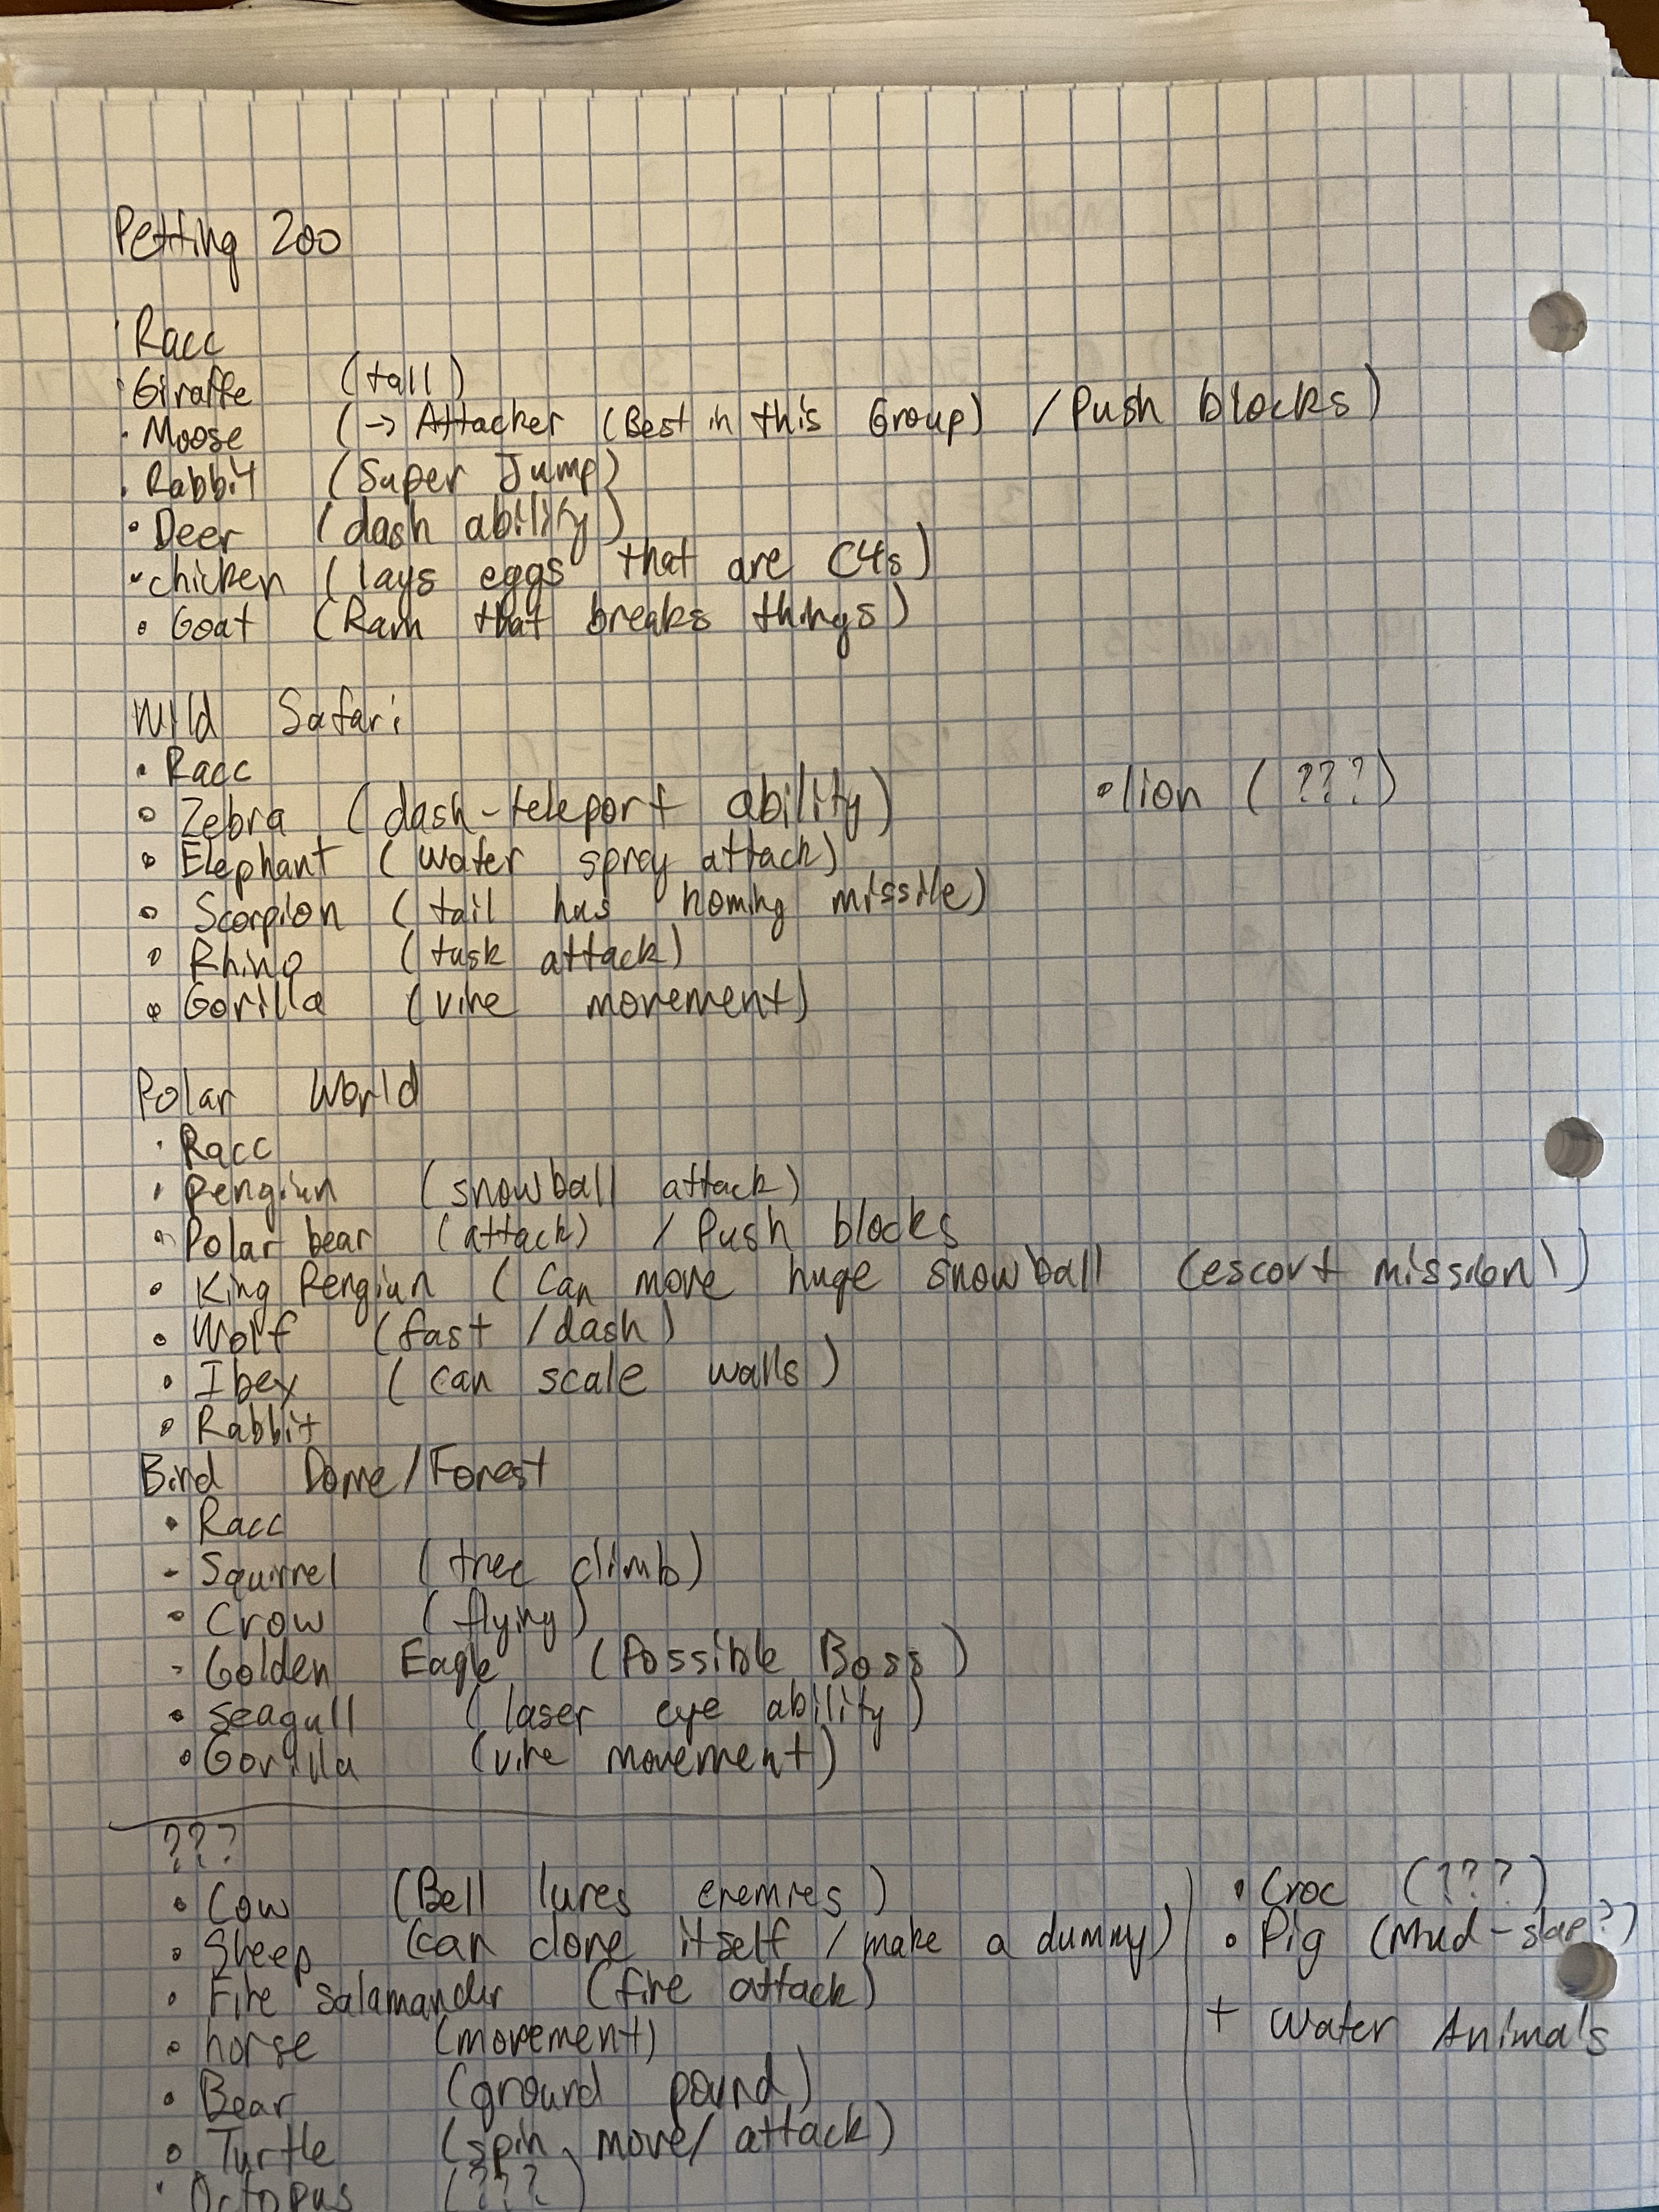 Petting Zoo
· Racc
· Giraffe (tall)
· Moose (→ Attacker (Best in this Group) / Push blocks)
· Rabbit (Super Jump)
· Deer (dash ability)
· chicken (lays eggs that are C4s)
· Goat (Ram that breaks things)
Wild Safari
· Racc
· Zebra (dash-teleport ability)
· lion (???)
· Elephant (water spray attack)
· Scorpion (tail has homing missile)
· Rhino (tusk attack)
· Gorilla (vine movement)
Polar World
· Racc
· Pengiun (snowball attack)
· Polar bear (attack) / Push blocks
· King Pengiun (Can move huge snowball (escort mission))
· Wolf (fast / dash)
· Ibex (can scale walls)
· Rabbit
Bird Dome/Forest
· Racc
- Squirrel (tree climb)
· Crow (flying)
- Golden Eagle (Possible Boss)
· seagull (laser eye ability)
· Gorilla (vine movement)
???
· Cow (Bell lures enemies)
· Sheep (can clone itself / make a dummy)
· Fire salamander (fire attack)
· horse (movement)
· Bear (ground pound)
· Turtle (spin move/ attack)
· Octopus (???)
· Croc (???)
· Pig (Mud-slap?)
+ Water Animals